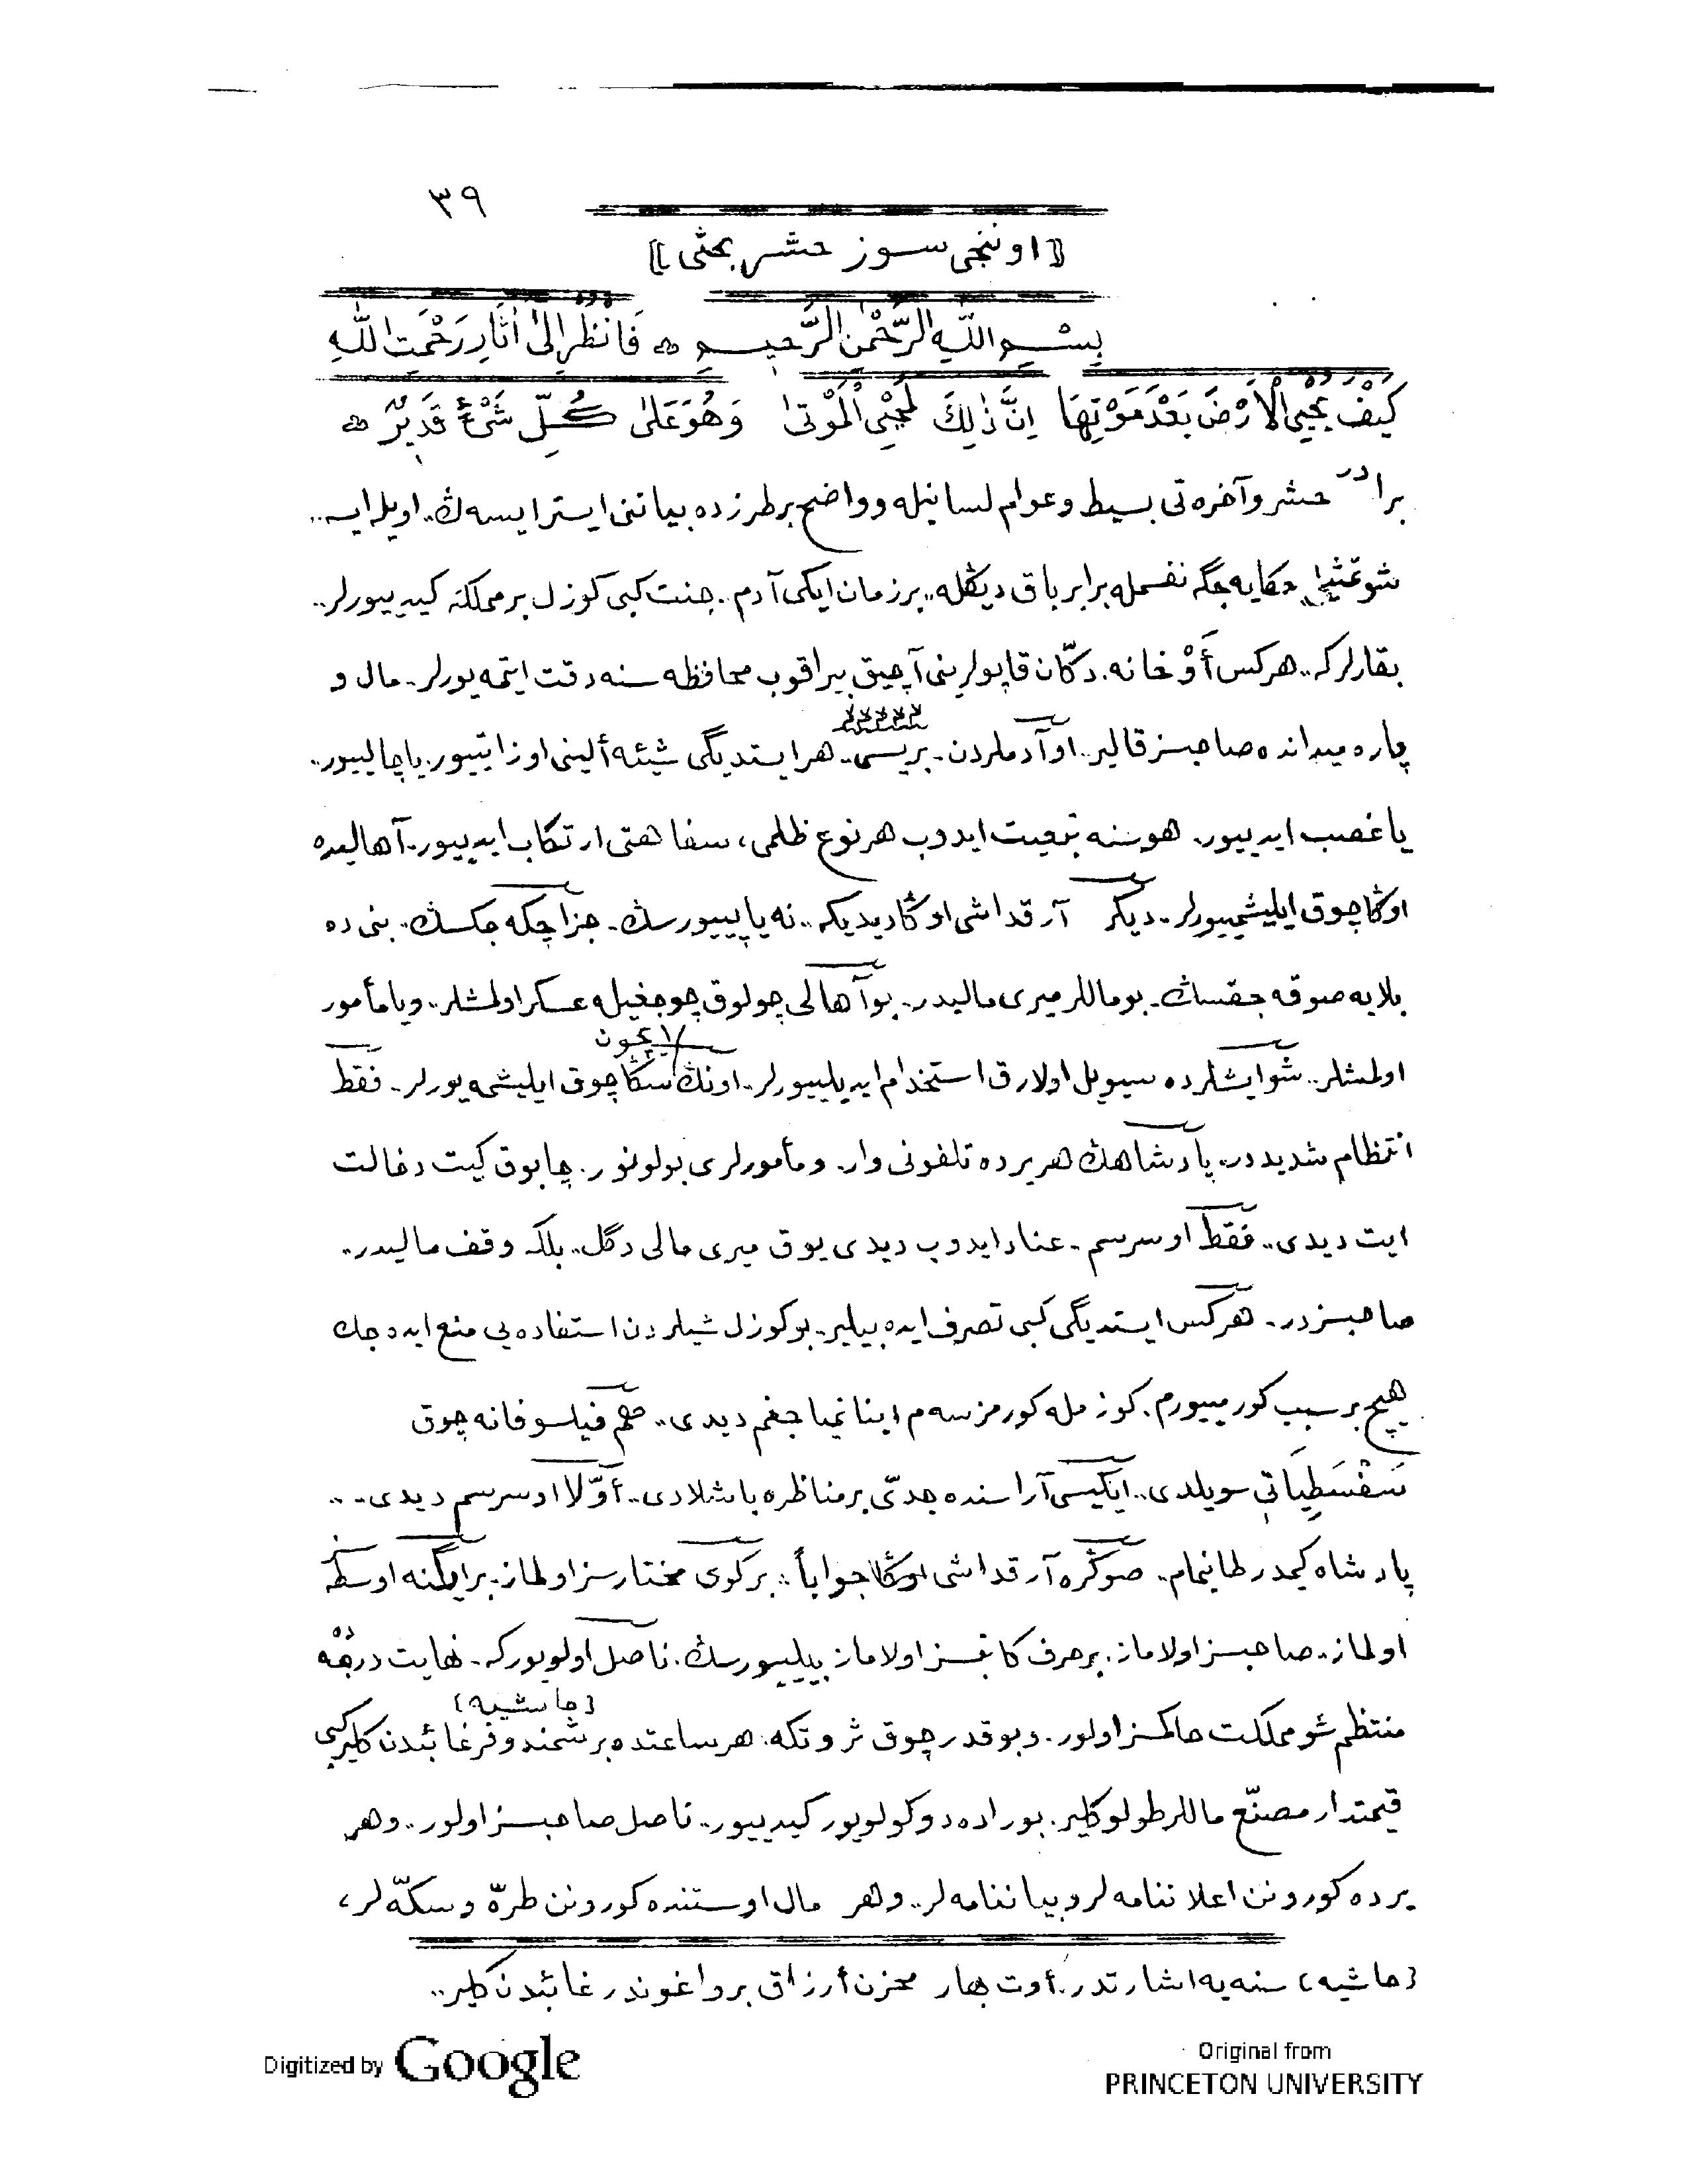 ٣٩
﴿ اوننجی سوز حشر بحثی ﴾
بِسْمِ اللّٰهِ الرَّحْمٰنِ الرَّحِيمِ ۞ فَانْظُرْ اِلٰٓى اٰثَارِ رَحْمَتِ اللّٰهِ
كَيْفَ يُحْيِى الْاَرْضَ بَعْدَ مَوْتِهَا اِنَّ ذٰلِكَ لَمُحْيِى الْمَوْتٰى وَهُوَ عَلٰى كُلِّ شَىْءٍ قَدِيرٌ ۞
برادر حشر وآخره تی بسیط وعوام لسانیله وواضح بر طرزده بیاننی ایستر ایسه ڭ.. اویله ایسه..
شو تمثیلی حکایه جگه نفسمله برابر باق دیڭله.. بر زمان ایکی آدم. جنت کبی کوزل بر مملکته کیدییورلر..
بقارلرکه.. هرکس أَوْ خانه. دکّان قاپولرینی آچیق بیراقوب محافظه سنه دقت ایتمه یورلر. مال و
پاره میدانده صاحبسز قالیر.. او آدملردن. بریسی. هر ایستدیگی شیئه ألینی اوزاتییور. یا چالییور..
یا غصب ایدییور. هوسنه تبعیت ایدوب هر نوع ظلمی، سفاهتی ارتکاب ایدییور. آهالیده
اوڭا چوق ایلیشمییورلر.. دیکر آرقداشی اوڭا دیدیکه.. نه یاپییورسڭ. جزا چکه جکسڭ. بنی ده
بلایه صوقه جقسڭ. بو ماللر میری مالیدر. بو آهالی چولوق چوجغیله عسکر اولمشلر.. ویا مأمور
اولمشلر.. شو ایشلرده سیویل اولارق استخدام ایدیلییورلر.. اونڭ ایچون سڭا چوق ایلیشمه یورلر. فقط
انتظام شدیددر. پادشاهڭ هر یرده تلفونی وار. ومأمورلری بولونور. چابوق کیت دخالت
ایت دیدی.. فقط او سرسم. عناد ایدوب دیدی یوق میری مالی دگل.. بلکه وقف مالیدر..
صاحبسزدر. هرکس ایستدیگی کبی تصرف ایده بیلیر. بو کوزل شیلردن استفاده یی منع ایده جك
هیچ بر سبب کورمییورم. کوزمله کورمزسه م اینانمیاجغم دیدی.. هم فیلسوفانه چوق
سَفْسَطِیَاتی سویلدی.. ایکیسی آراسنده جدّی بر مناظره باشلادی.. أوّلا او سرسم دیدی...
پادشاه کیمدر طانیمام. صوڭره آرقداشی اوڭا جواباً.. بر کوی مختارسز اولماز. بر ایگنه اوسطه سز
اولماز.. صاحبسز اولاماز. بر حرف کاتبسز اولاماز بیلییورسڭ. ناصل اولویورکه. نهایت درجه ده
منتظم شو مملکت حاکمسز اولور. وبو قدر چوق ثروتکه. هر ساعتده بر شمندوفر غائبدن کلیر کبی
﴿حاشیه﴾
قیمتدار مصنّع ماللر طولو کلیر. بوراده دوکولویور کیدییور.. ناصل صاحبسز اولور.. وهر
یرده کورونن اعلاننامه لر وبیاننامه لر.. وهر مال اوستنده کورونن طرّه وسکّه لر،
﴿حاشیه﴾ سنه یه اشارتدر. أوت بهار مخزن أرزاق بر واغوندر غائبدن کلیر..
Digitized by Google
Original from
PRINCETON UNIVERSITY